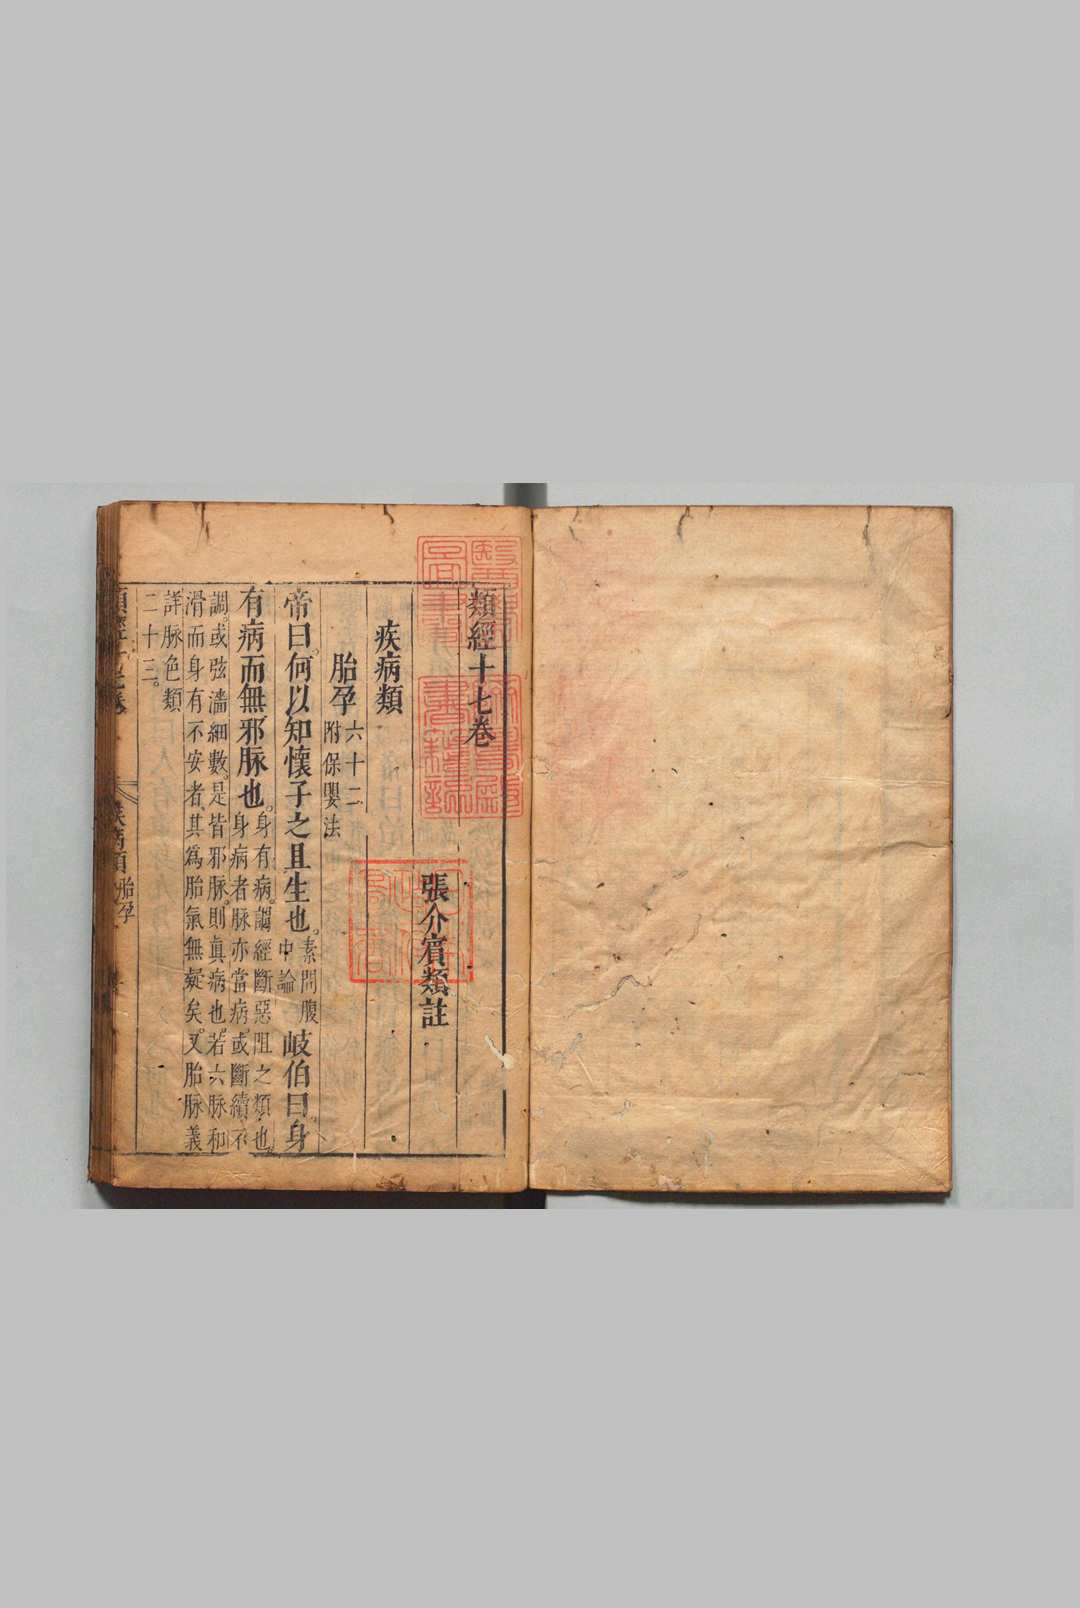 類經十七卷
張介賓類註
疾病類
胎孕
六十二
附保嬰法
帝曰。何以知懷子之且生也。
素問腹
中論
岐伯曰。身
有病而無邪脉也。
身有病。謂經斷惡阻之類也。
身病者脉亦當病。或斷續不
調。或弦濇細數。是皆邪脉。則眞病也。若六脉和
滑而身有不安者、其爲胎氣無疑矣。又胎脉義
詳脉色類
二十三。
疾病類
胎孕